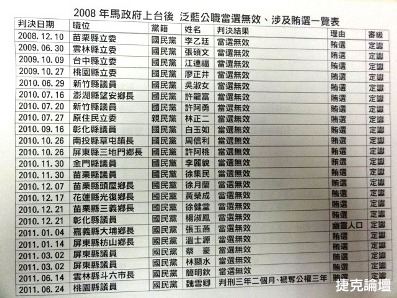 2008 年馬政府上台後 泛藍公職當選無效、涉及賄選一覽表
判決日期 職位 黨籍 姓名 判決結果 理由 審級
2008.12.10 苗栗縣立委 國民黨 李乙廷 當選無效 賄選 定讞
2009.06.30 雲林縣立委 國民黨 張碩文 當選無效 賄選 定讞
2009.10.09 台中縣立委 國民黨 江連福 當選無效 賄選 定讞
2009.10.27 桃園縣立委 國民黨 廖正井 當選無效 賄選 定讞
2010.06.29 新竹縣議員 國民黨 吳淑女 當選無效 賄選 定讞
2010.07.16 澎湖縣望安鄉長 國民黨 許龍富 當選無效 賄選 定讞
2010.07.20 新竹縣議員 國民黨 許阿勇 當選無效 賄選 定讞
2010.07.27 原住民立委 親民黨 林正二 當選無效 賄選 定讞
2010.09.16 彰化縣議員 國民黨 白玉如 當選無效 賄選 定讞
2010.10.26 南投縣草屯鎮長 國民黨 周信利 當選無效 賄選 定讞
2010.10.26 屏東縣三地門鄉長 國民黨 許阿桃 當選無效 賄選 定讞
2010.11.30 金門縣議員 國民黨 李 當選無效 賄選 定讞
2010.11.30 苗栗縣議員 國民黨 徐集民 當選無效 賄選 定讞
2010.12.07 苗栗縣頭屋鄉長 國民黨 徐月蘭 當選無效 賄選 定讞
2010.12.17 花蓮縣光復鄉長 國民黨 黃榮成 當選無效 賄選 定讞
2010.12.21 苗栗縣三義鄉長 國民黨 徐 當選無效 賄選 定讞
2010.12.21 彰化縣議員 國民黨 楊淑鳳 當選無效 賄選 定讞
2011.01.04 嘉義縣大埔鄉長 國民黨 張玉燕 當選無效 幽靈人口 定讞
2011.01.14 屏東縣枋山鄉長 國民黨 溫土源 當選無效 賄選 定讞
2011.03.02 屏東縣議員 國民黨 蔡 豪 當選無效 賄選 定讞
2011.03.02 屏東縣議員 國民黨 林顯水 當選無效 賄選 定讞
2011.06.14 雲林縣斗六市長 國民黨 簡明欽 當選無效 賄選 定讞
2011.06.24 桃園縣議員 國民黨 魏雪卿 判刑三年二個月、褫奪公權三年 賄選 定讞
捷克論壇